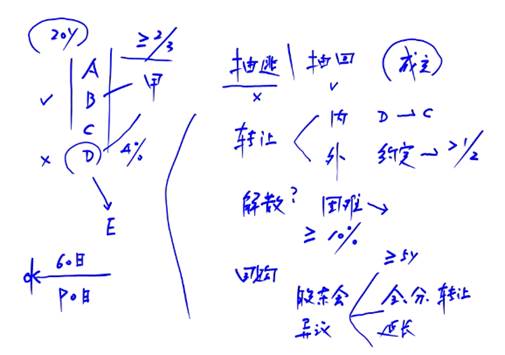 20Y
≥2/3
A
√ B 甲
C
× D 4%
E
60日
90日
抽逃 | 抽回 (成立)
× √
转让 < 内 D→C
外 约定→>1/2
解散? 困难→
≥10%
回购
≥5Y
股东会 全、分、转让
异议 延长